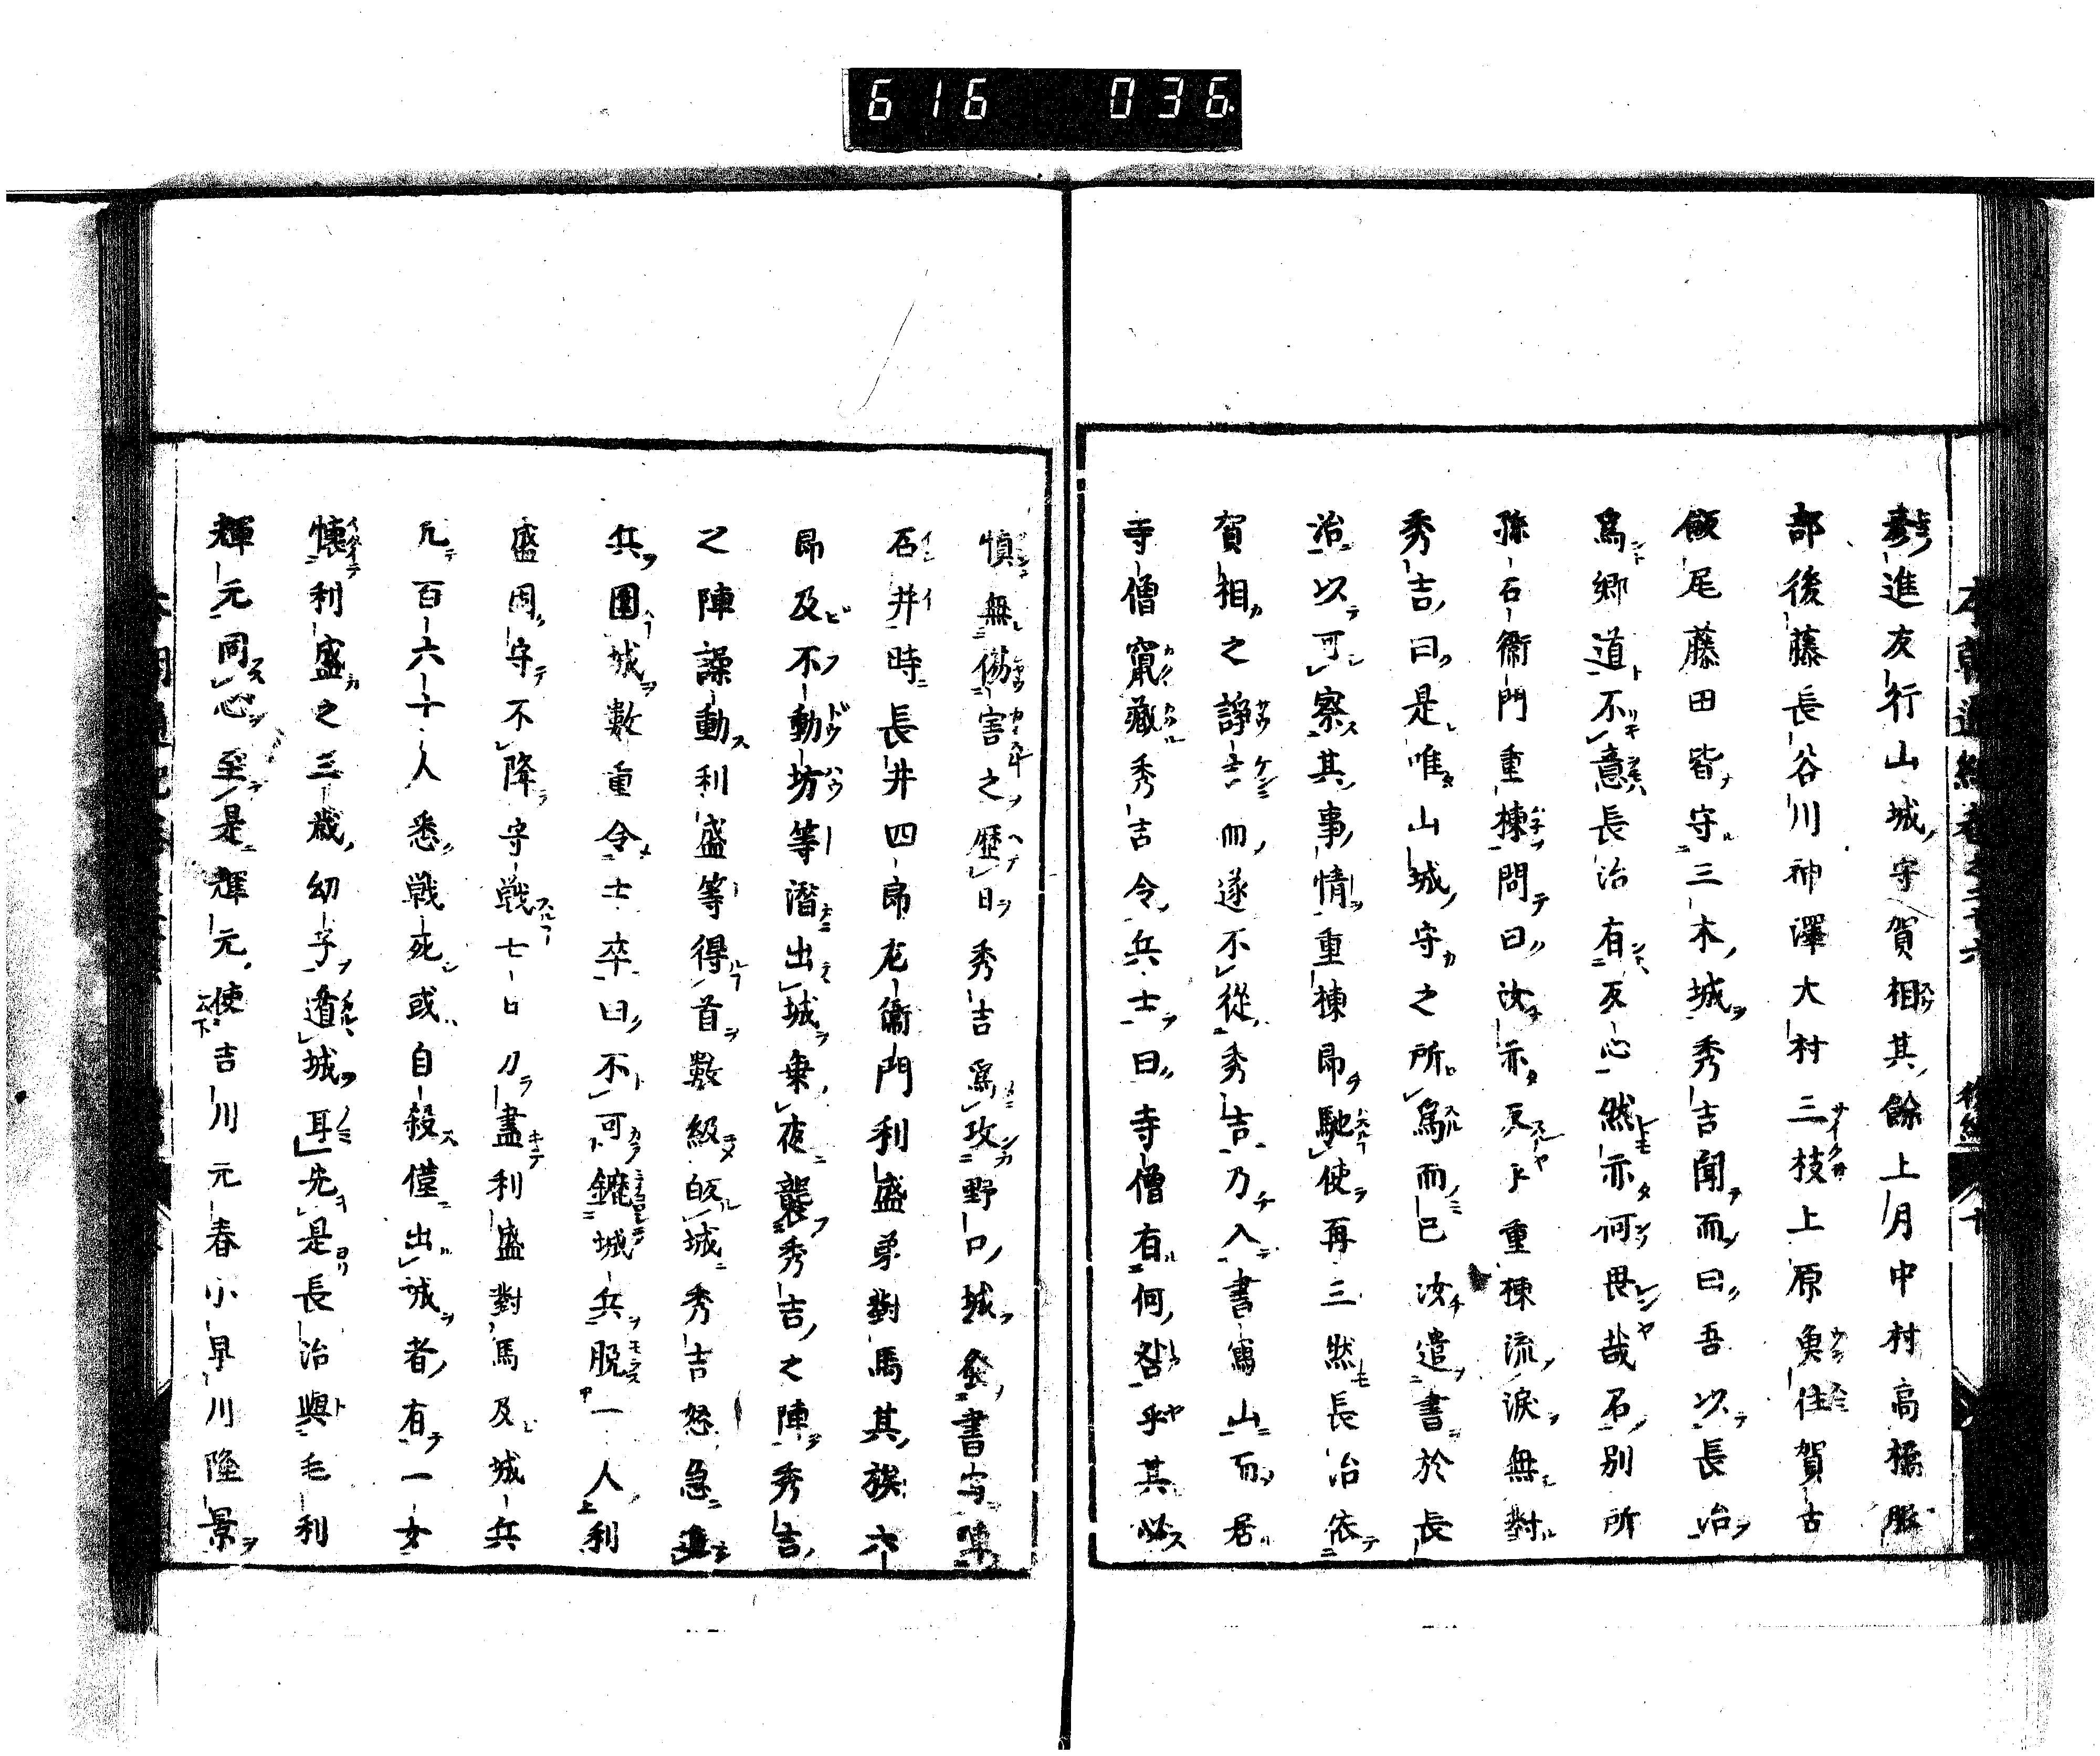 616 036
彝進友行山城守賀相其餘上月中村高橘服
部後藤長谷川神澤大村三枝上原魚住賀古
飯尾藤田皆守三木城秀吉聞而曰吾以長治
為郷道不意長治有反心然亦何畏哉石別所
孫右衛門重棟問曰汝亦反卜重棟流涙無對
秀吉曰是唯山城守之所為而已汝遣書於長
治以可察其事情重棟即馳使再三然長治依
賀相之諍言而遂不從秀吉乃入書寫山而居
寺僧竄藏秀吉令兵士曰寺僧有何咎乎其必
慎無傷害之歴日秀吉為攻野口城發書写陣
石井時長井四郎左衛門利盛弟對馬其族六
郎及不動坊等潜出城乗夜襲秀吉之陣秀吉
之陣譟動利盛等得首數級皈城秀吉怒急進
兵圍城數重令士卒曰不可鏖城兵脱一人利
盛固守不降守戦七日力盡利盛對馬及城兵
凡百六十人悉戦死或自殺僅出城者有一女
懐利盛之三歳幼子遁城耳先是長治與毛利
輝元同心至是輝元使吉川元春小早川隆景